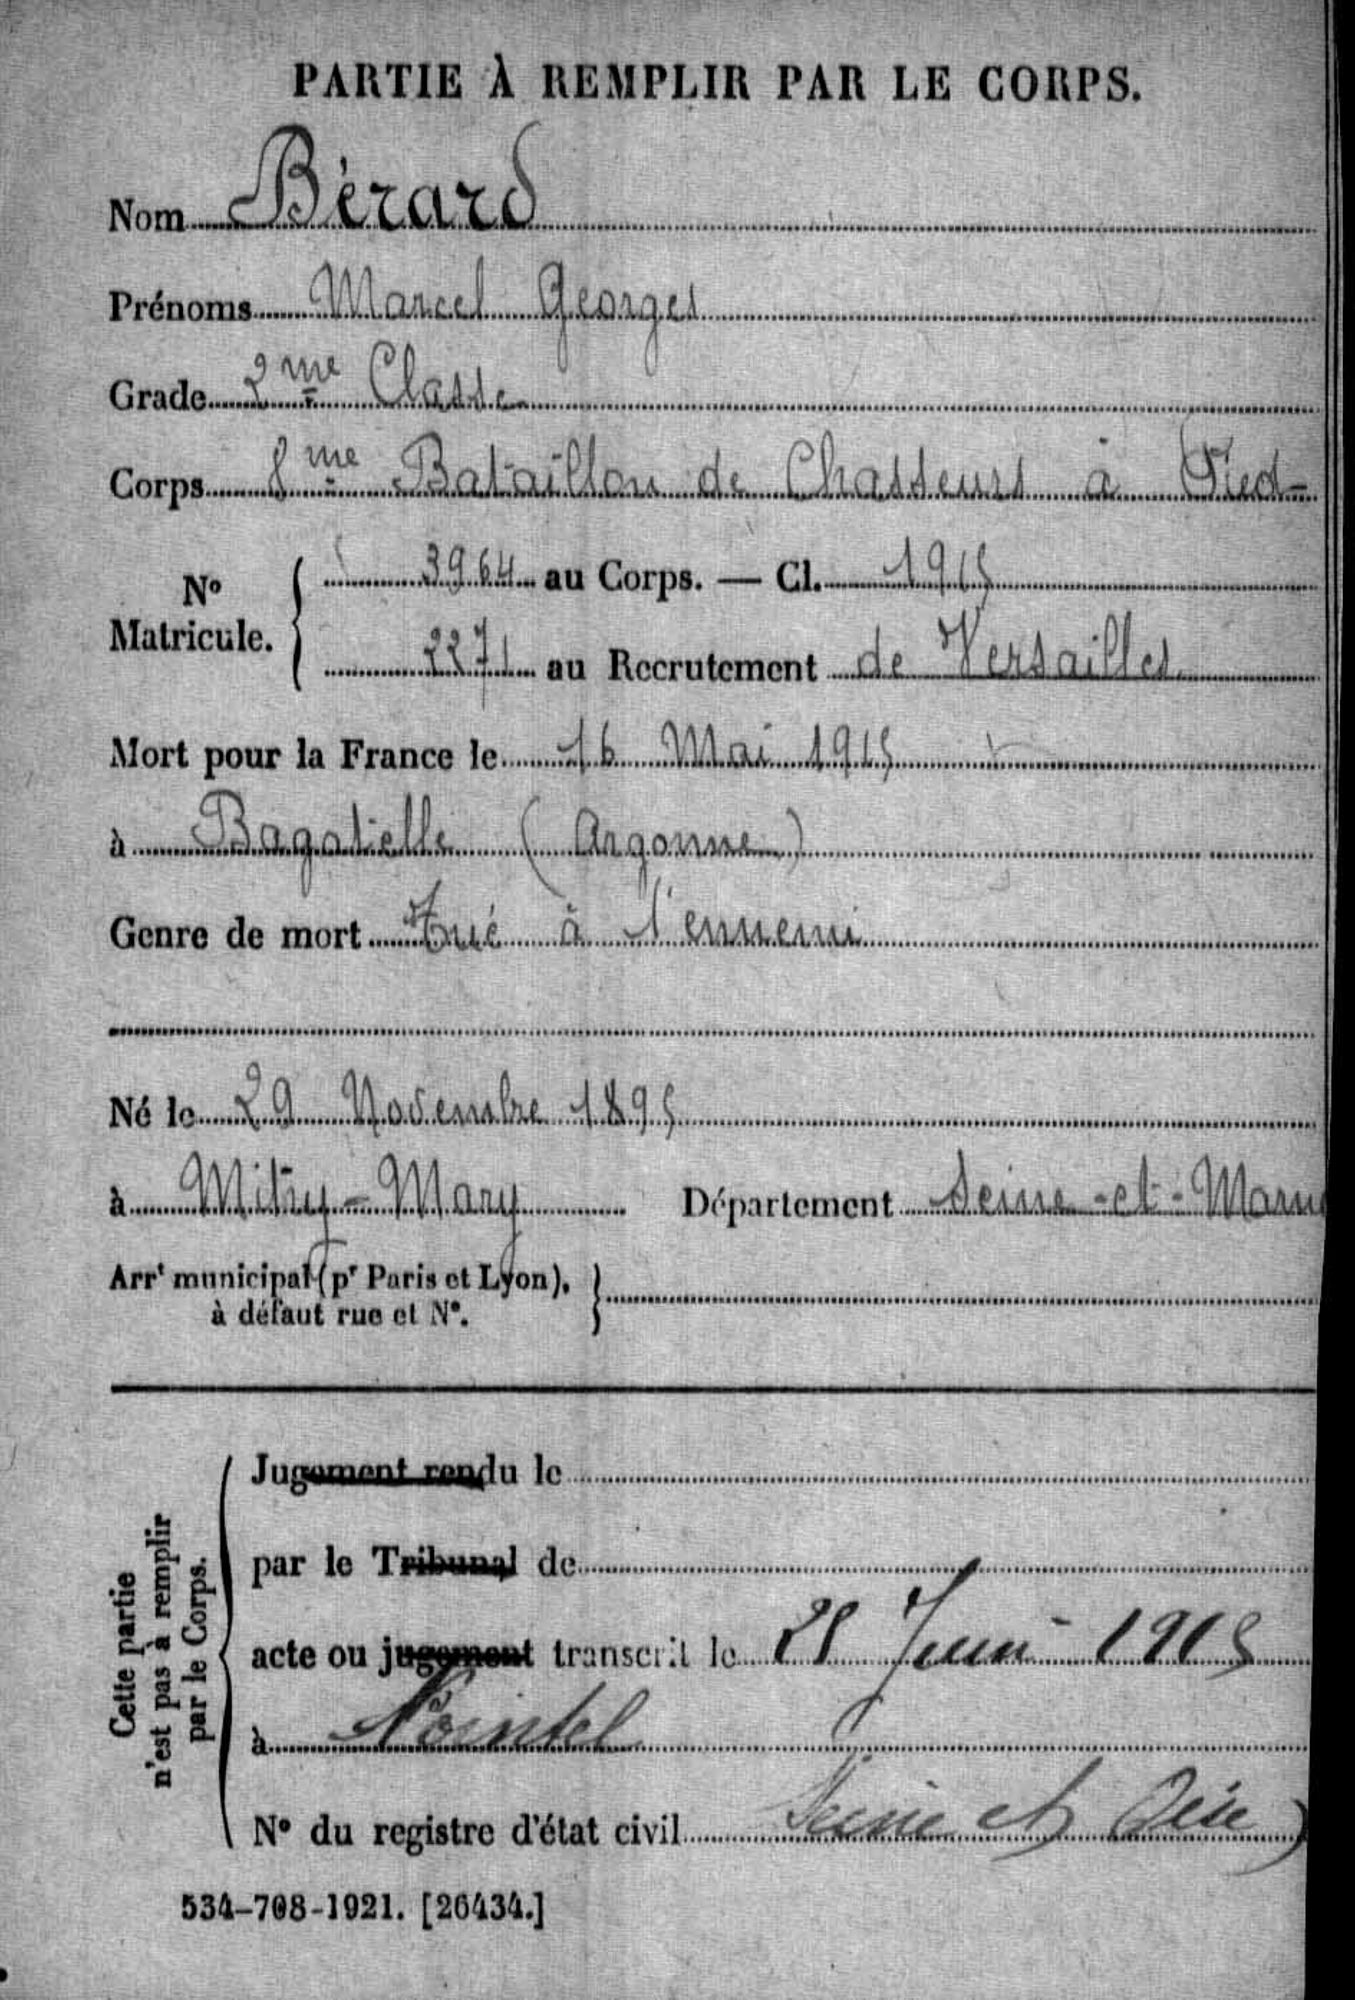 PARTIE À REMPLIR PAR LE CORPS.
Nom Bérard
Prénoms Marcel Georges
Grade 2me Classe
Corps 8me Bataillon de Chasseurs à Pied-
No Matricule. 3964 au Corps. — Cl. 1915
2271 au Recrutement de Versailles
Mort pour la France le 16 Mai 1915
à Bagatelle (Argonne)
Genre de mort Tué à l'ennemi
Né le 29 Novembre 1895
à Mitry-Mory Département Seine-et-Marne
Arrt municipal (pr Paris et Lyon),
à défaut rue et N°.
Cette partie
n'est pas à remplir
par le Corps.
Jugement rendu le
par le Tribunal de
acte ou jugement transcrit le Juin 1915
à Nointel
N° du registre d'état civil Seine et Oise)
534-708-1921. [26434.]